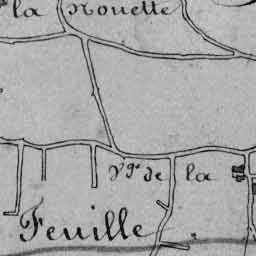 la Nouette
de la
Feuille